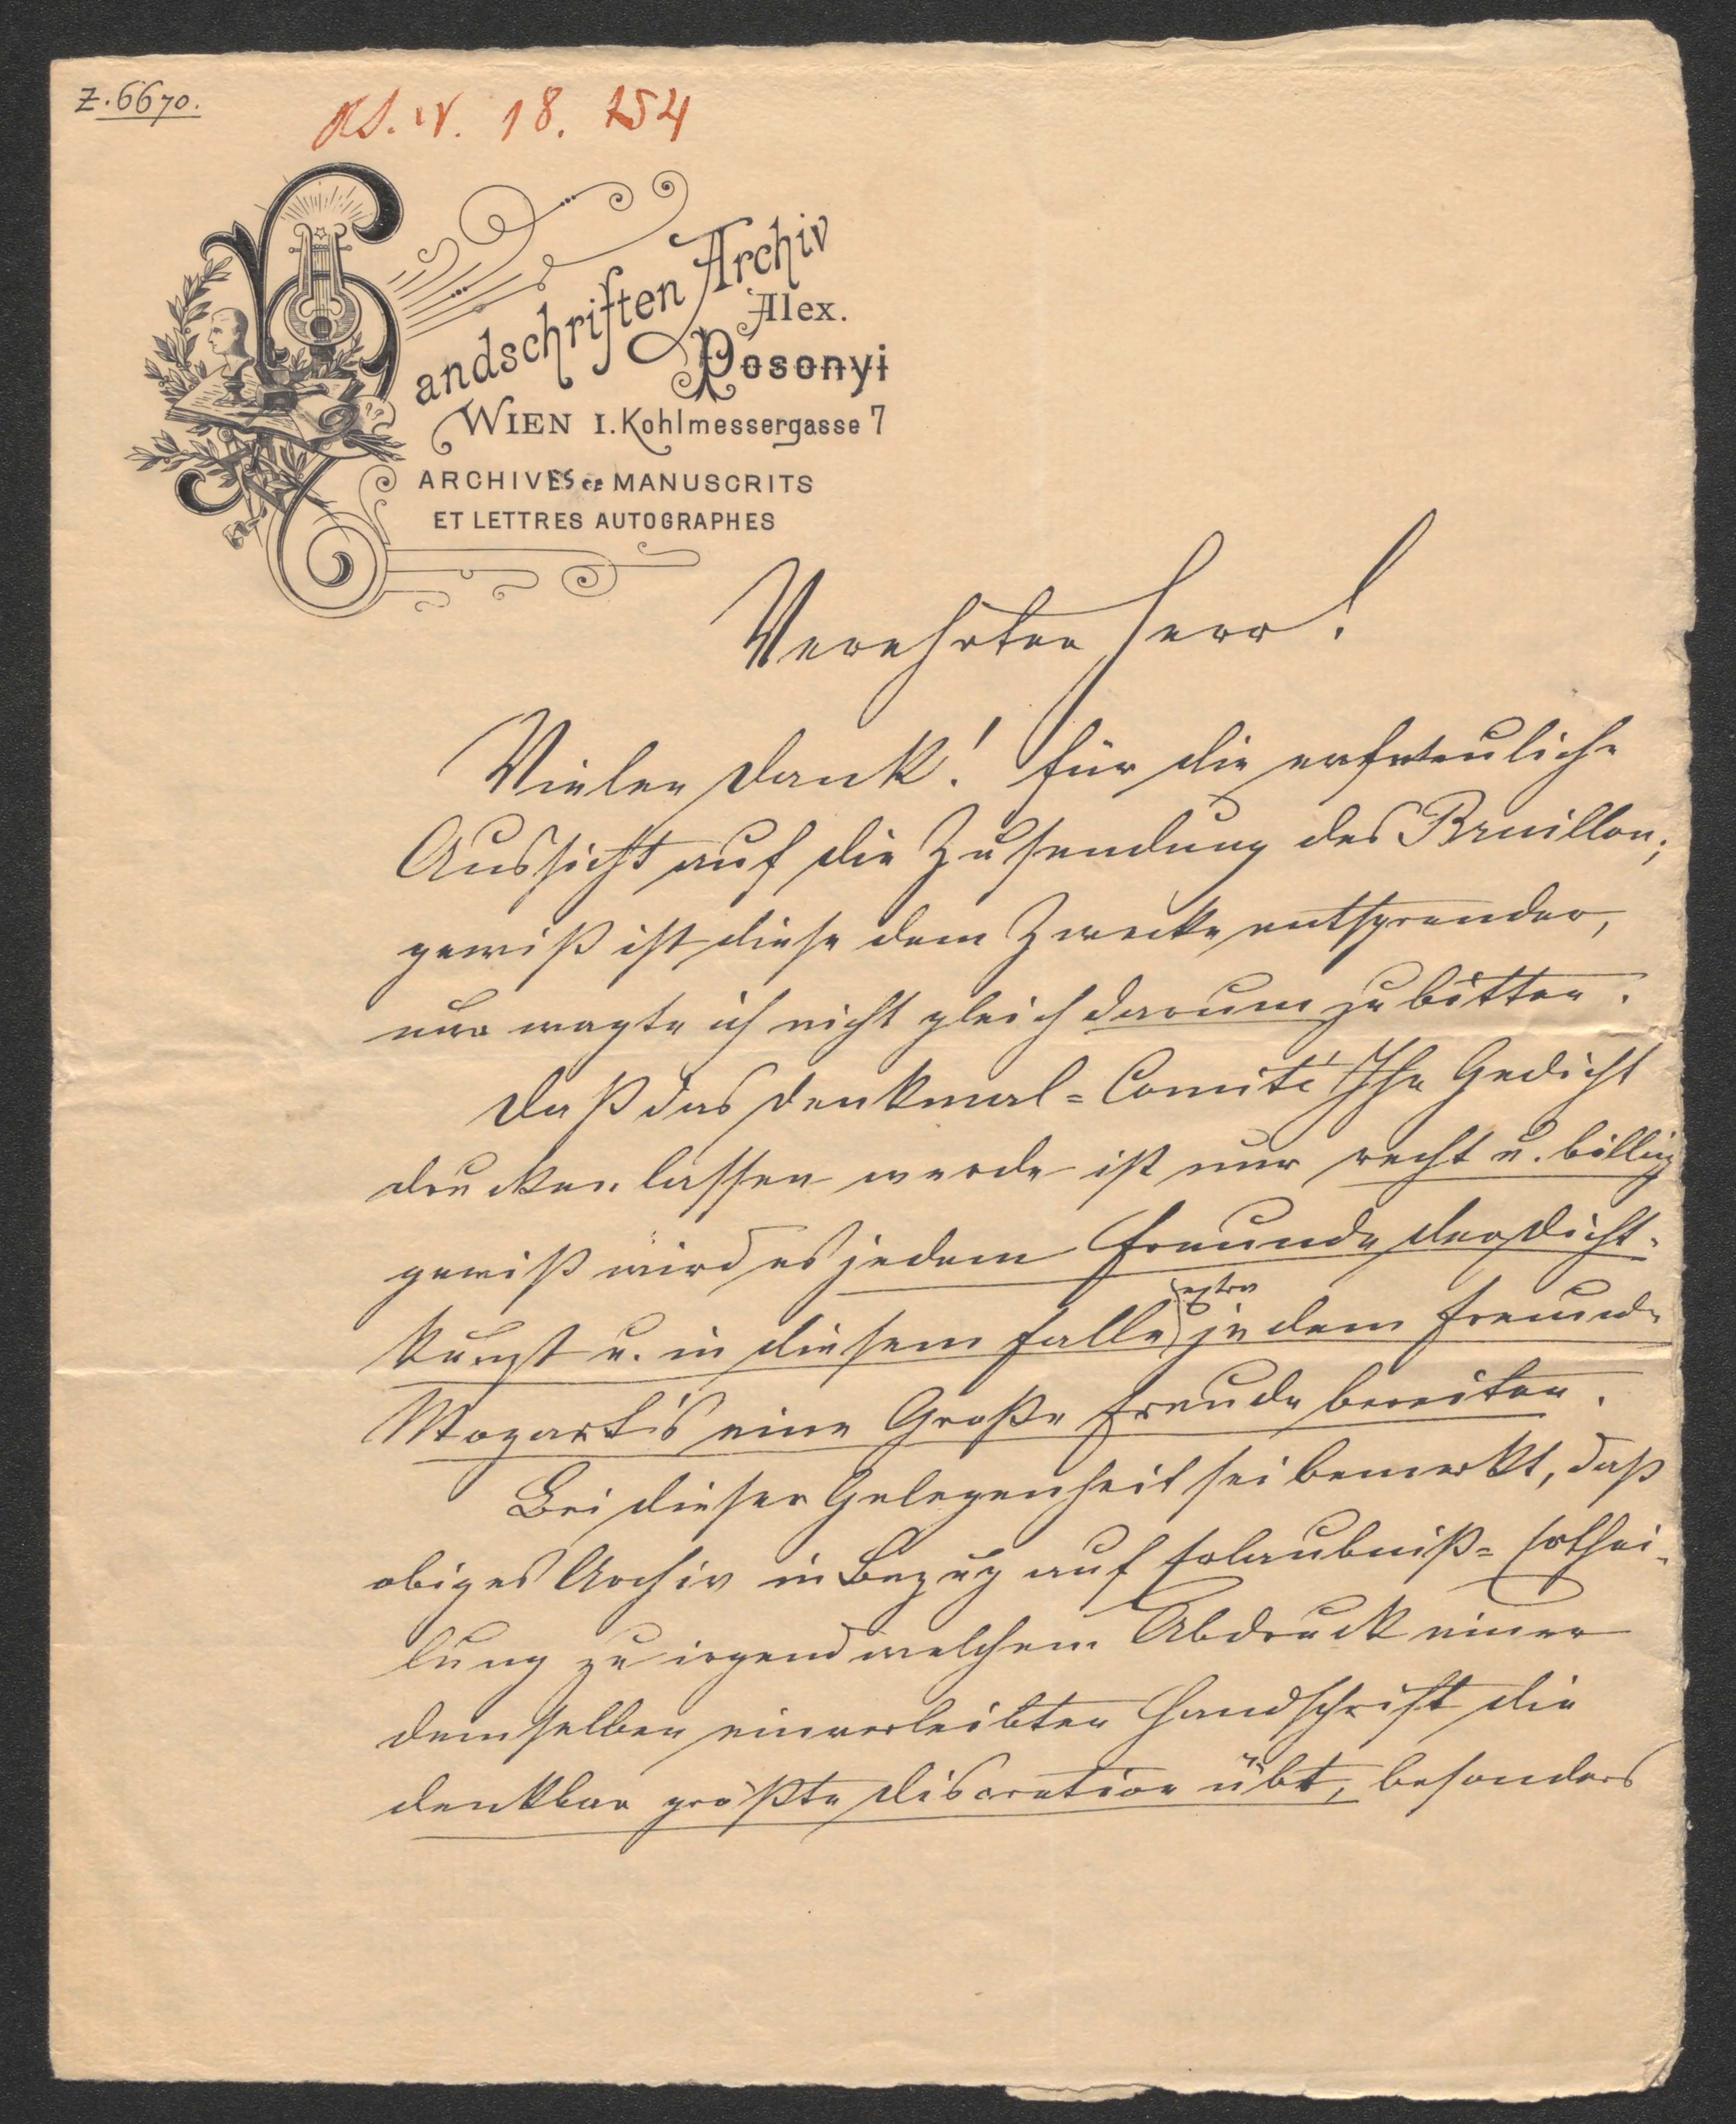 Z. 6670.
18. 254
Handschriften Archiv
Alex.
Posonyi
WIEN I. Kohlmessergasse 7
ARCHIVES DE MANUSCRITS
ET LETTRES AUTOGRAPHES
Verehrter Herr!
Vielen Dank! für die erfreuliche
Aussicht auf die Zusendung des Brouillon;
gewiß ist diese dem Zwecke entsprender,
nur wagte ich nicht gleich darum zu bitten.
Daß das Denkmal=Comité Ihr Gedicht
drucken lassen werde ist nur recht u. billig
gewiß wird es jedem Freunde der Dicht-
kunst u. in diesem Falle extra jedem Freunde
Mozart's eine Große Freude bereiten.
Bei dieser Gelegenheit sei bemerkt, daß
obiges Archiv in Bezug auf Erlaubniß=Erthei-
lung zu irgend welchem Abdruck einer
demselben einverleibten Handschrift die
denkbar größte Discretion übt, besonders